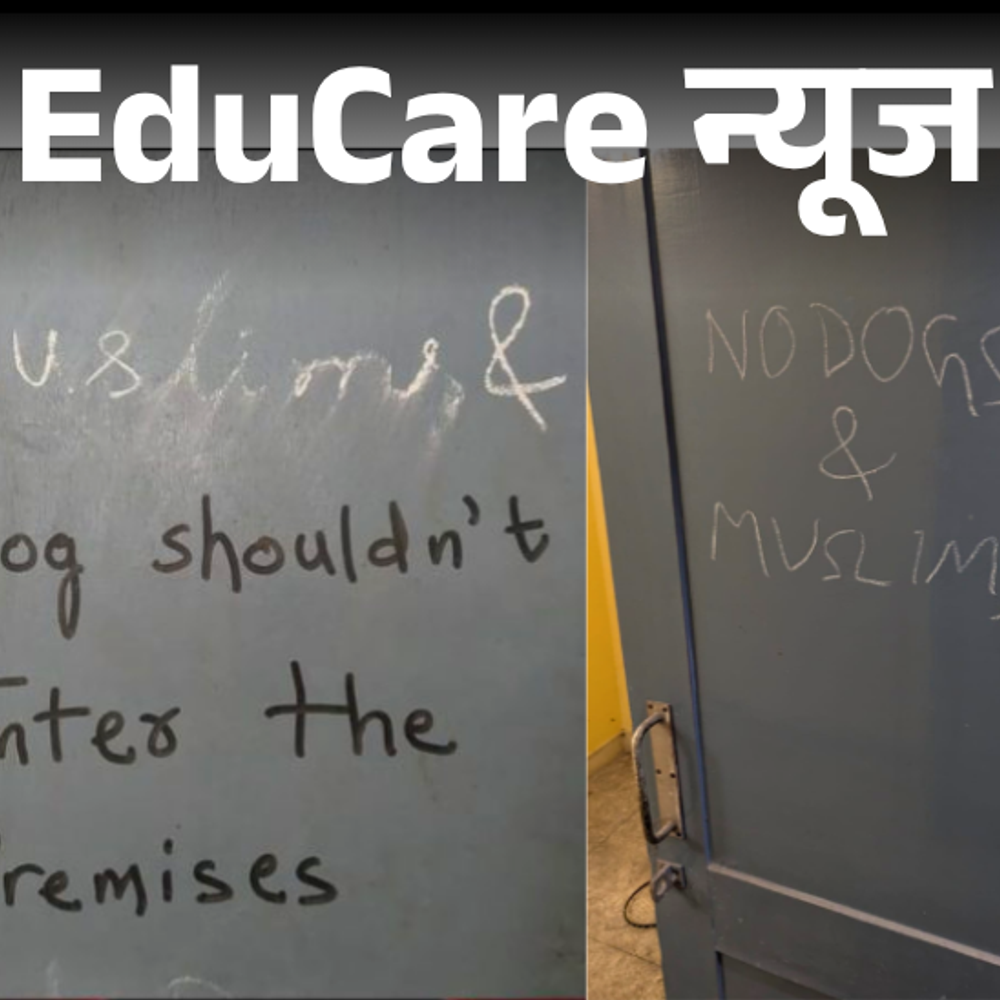 EduCare न्यूज
uslims &
og shouldn't
nter the
remises
NO DOGS
&
MUSLIM